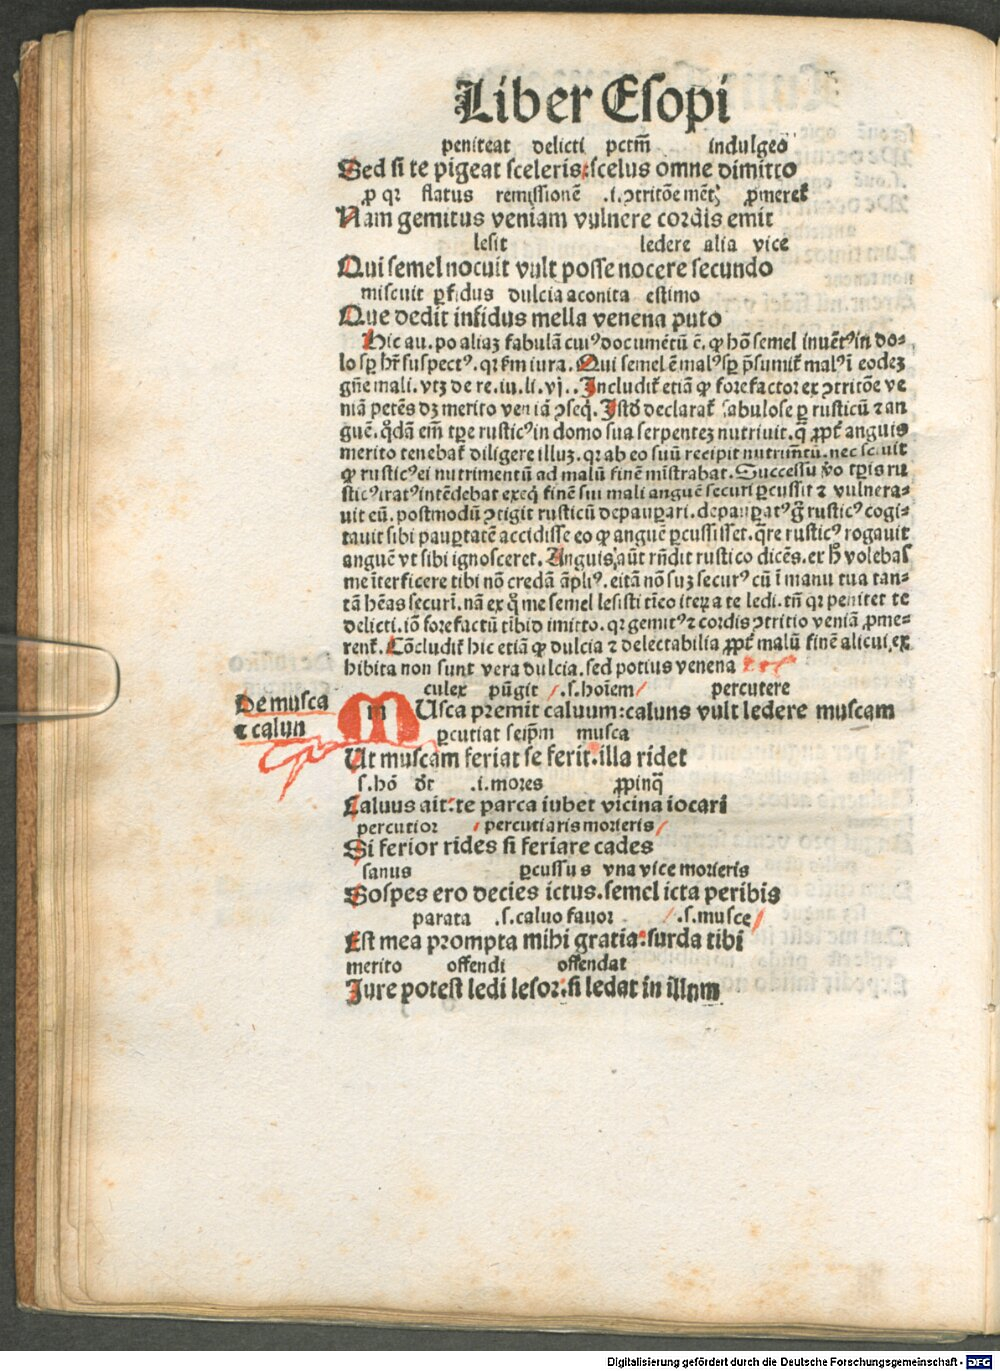 Liber Esopi
peniteat delicti pctm̄ indulgeo
Sed si te pigeat sceleris: scelus omne dimitto
flatus remissionē .i. ꝯtritōe
Nam gemitus veniam vulnere cordis emit
lesit ledere alia vice
Qui semel nocuit vult posse nocere secundo
miscuit ꝑfidus dulcia aconita estimo
Que dedit infidus mella venena puto
Hic au. po aliaꝫ fabulā cuiꝰ documētū ē. ꝙ hō semel inuētꝰ in do-
lo sꝑ hr̄ suspectꝰ. qꝛ km̄ iura. Qui semel ē malꝰ sꝑ p̄sumit̄ malꝰ ī eodeꝫ
gn̄e mali. vtꝫ de re. iu. li. vj.. Includit̄ etiā ꝙ forefactor ex ꝯtritōe ve
niā petēs dꝫ merito veniā ꝯseq̄. Istd̄ declarat̄ fabulose ꝑ rusticū ⁊ an
guē. q̊dā em̄ tꝑe rusticꝰ in domo sua serpenteꝫ nutriuit. q̄ ꝓpt̄ anguis
merito tenebat̄ diligere illuꝫ. qꝛ ab eo suū recipit nutrim̄tū. nec sciuit
ꝙ rusticꝰ ei nutrimentū ad malū finē mīstrabat. Successu v̊o tꝑis ru
sticꝰ iratꝰ intēdebat exeq̄ finē sui mali anguē securi ꝑcussit ⁊ vulnera-
uit eū. postmodū ꝯtigit rusticū depauꝑari. depauꝑatꝰ g̊ rusticꝰ cogi-
tauit sibi pauꝑtatē accidisse eo ꝙ anguē ꝑcussisset. q̄re rusticꝰ rogauit
anguē vt sibi ignosceret. Anguis aūt rn̄dit rustico dicēs. ex h̊ volebas
me īterficere tibi nō credā āpliꝰ. etiā nō suꝫ securꝰ cū ī manu tua tan-
tā hēas securī. nā ex q̊ me semel lesisti tīeo iteꝝ a te ledi. tn̄ qꝛ penitet te
delicti. iō forefactū tibi dimitto. qꝛ gemitꝰ ⁊ cordis ꝯtritio veniā ꝓme-
rent̄. Cōcludit̄ hic etiā ꝙ dulcia ⁊ delectabilia ꝓpt̄ malū finē alicui ex
hibita non sunt vera dulcia. sed potius venena
culex pūgit .s. hoīem percutere
De musca
⁊ caluo
MUsca premit caluum: caluus vult ledere muscam
ꝑcutiat seip̄m musca
Ut muscam feriat se ferit. illa ridet
s. hō .i. mores ꝓpinq̄
Caluus ait: te parca iubet vicina iocari
percutior percutiaris morieris
Si ferior rides si feriare cades
sanus ꝑcussus vna vice morieris
Sospes ero decies ictus. semel icta peribis
parata .s. caluo fauor .s. musce
Est mea prompta mihi gratia: surda tibi
merito offendi offendat
Iure potest ledi lesor: si ledat in illum
Digitalisierung gefördert durch die Deutsche Forschungsgemeinschaft - DFG